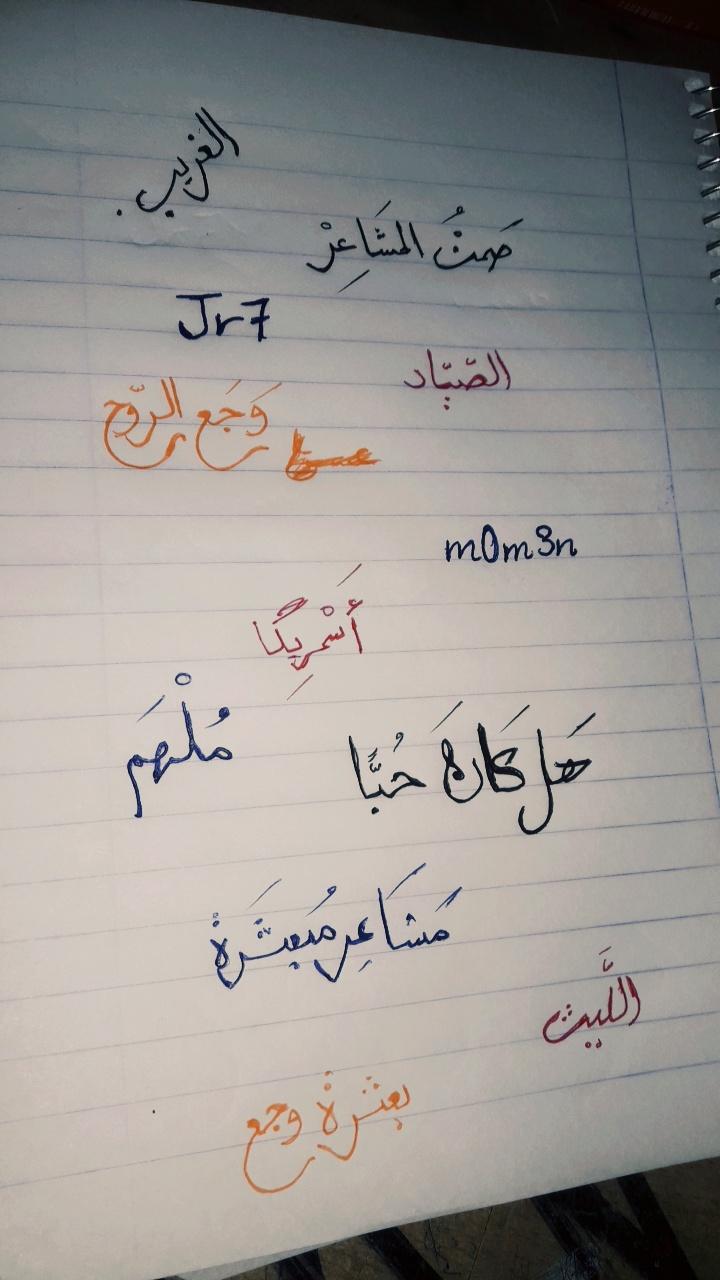 الغريب
صَمتُ المَشَاعِرْ
Jr7
الصّيّاد
وَجَع الرّوح
m0m3n
أَسْمِرِيكَا
مُلْهَم
هَل كَانَ حُبًّا
مَشَاعِر مُبعثَرَة
اللَّيث
بعثَرة وجع